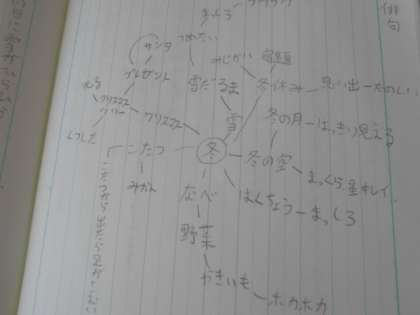 俳句
サンタ
つめたい
みじかい
宿題
プレゼント
雪だるま
冬休み
思い出
たのしい
雪
冬の月
はっきり見える
クリスマス
クリスマスツリー
くつした
冬
冬の空
まっくら
星キレイ
こたつ
みかん
こたつから出たら足がさむい
なべ
はくちょう
まっしろ
野菜
やきいも
ホカホカ